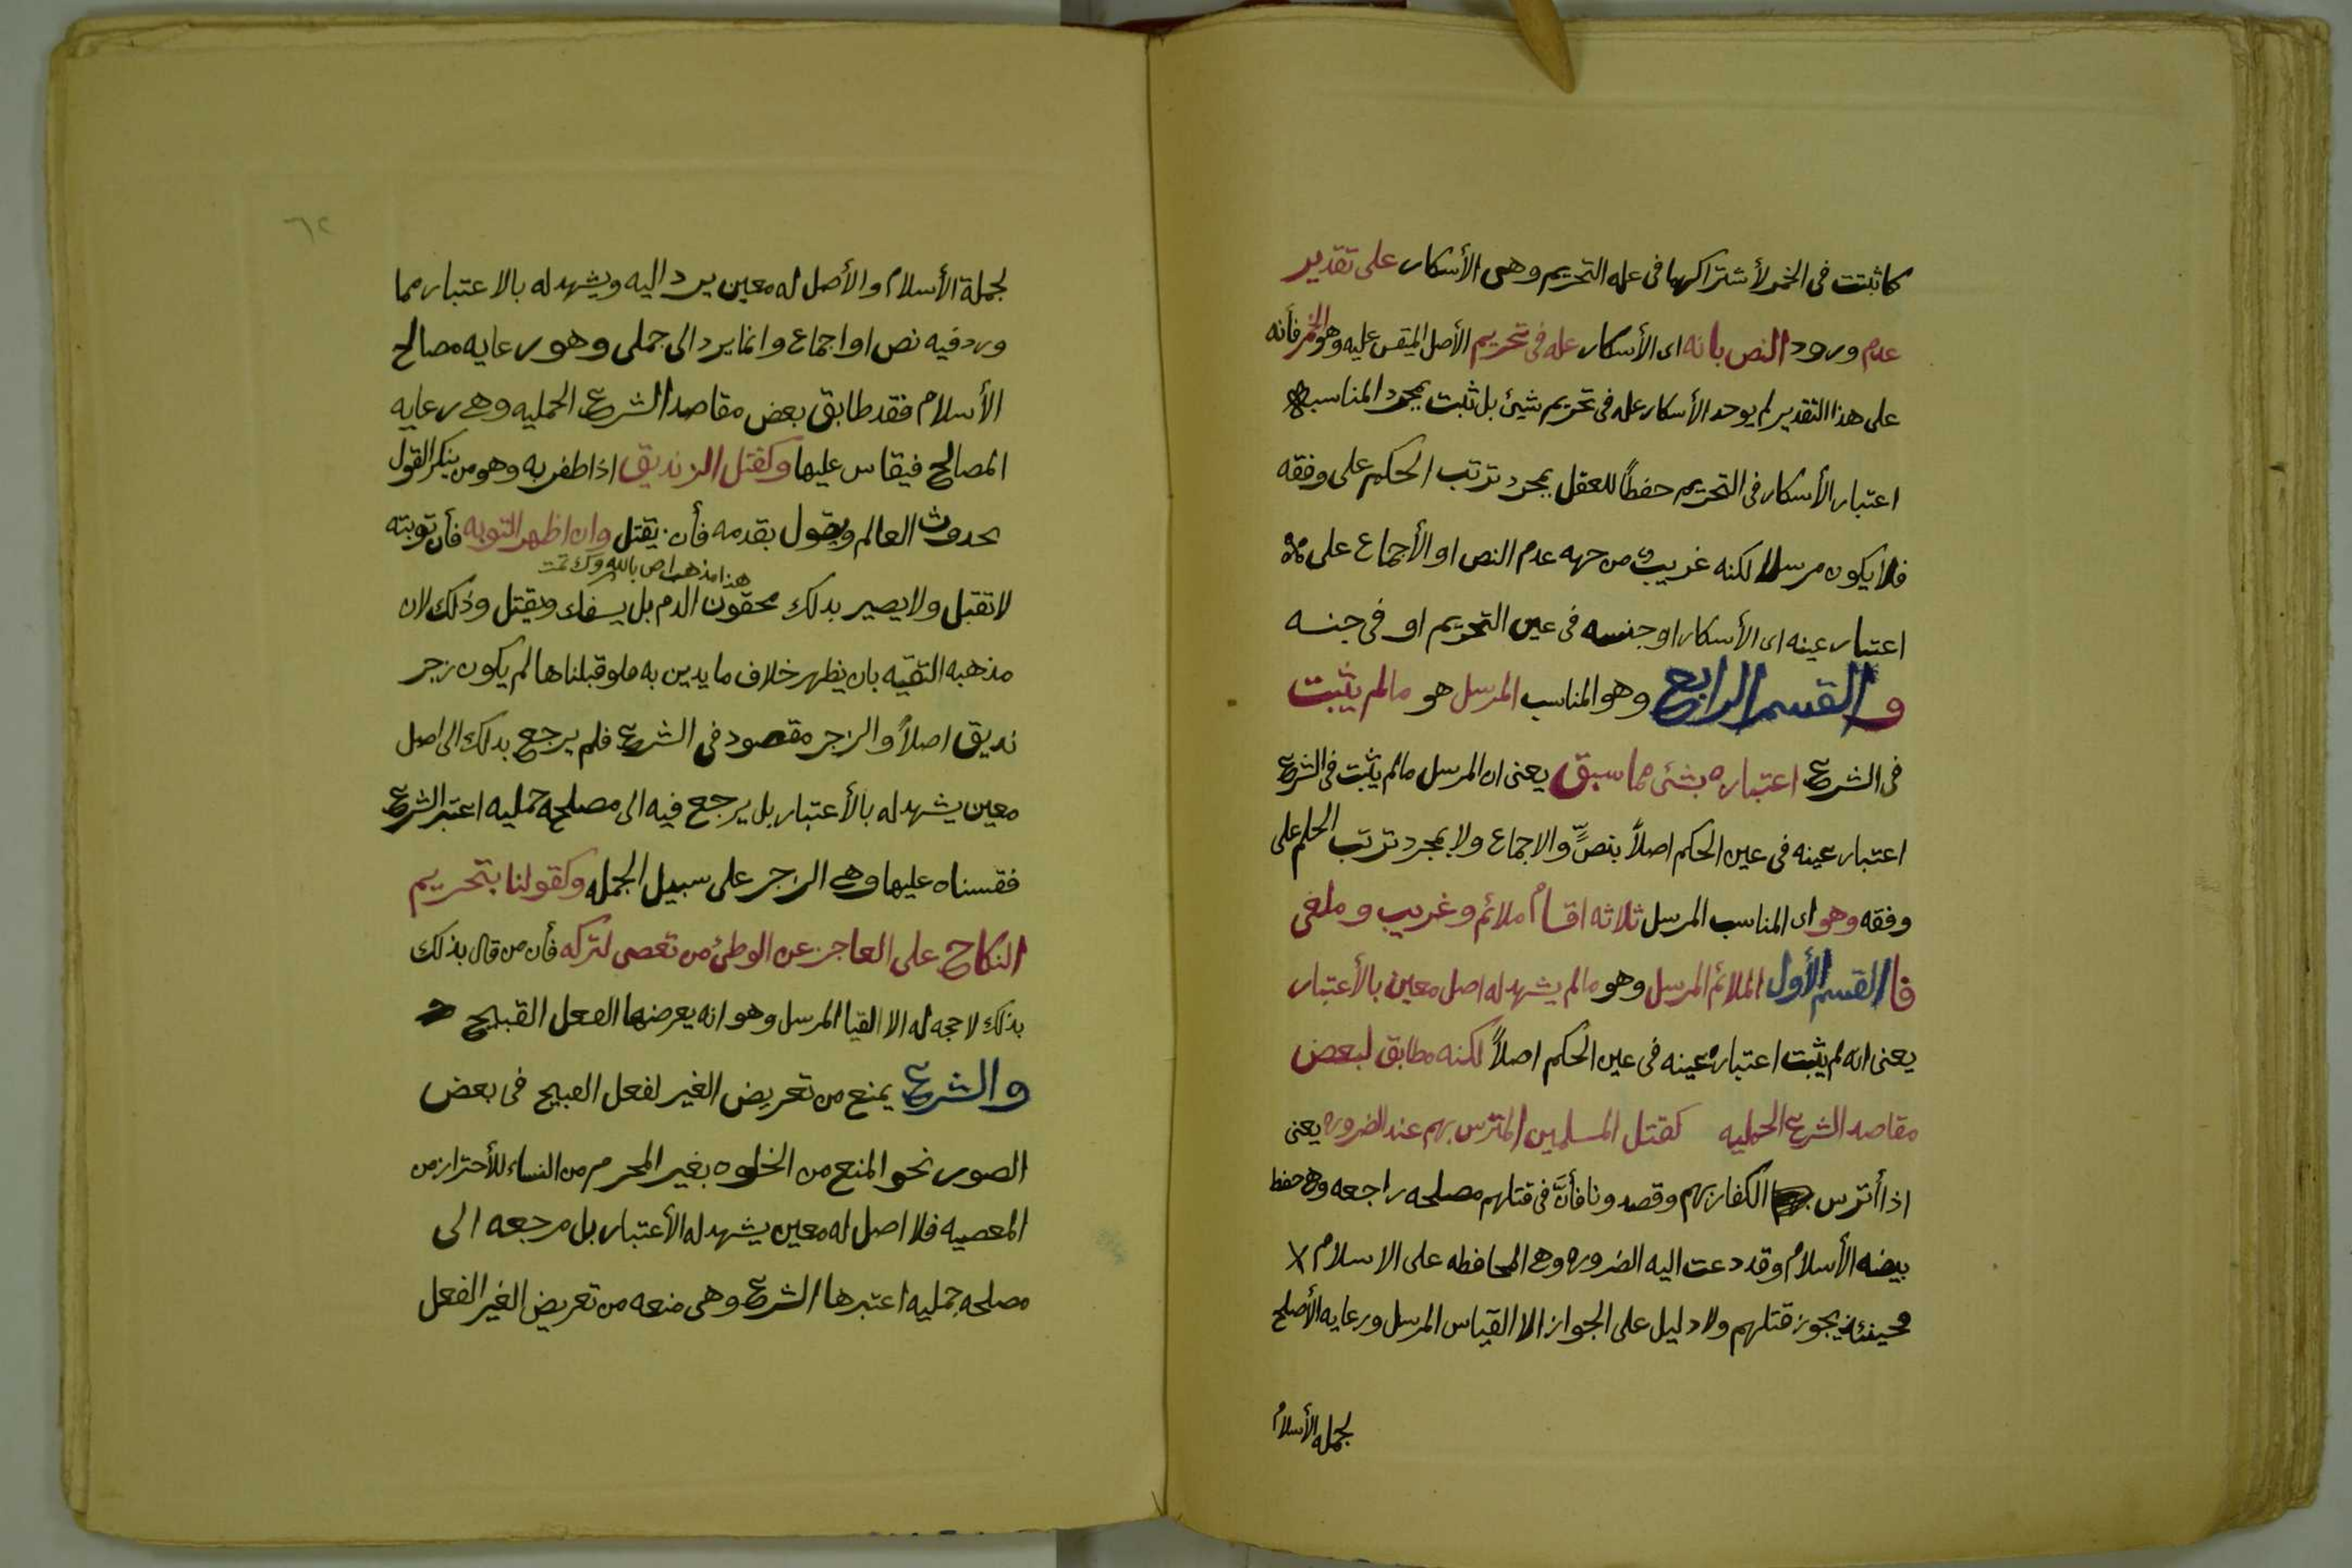 كما ثبتت في الخمر لأشتراكهما في عله التحريم وهي الأسكار على تقدير
عدم ورود النص بانه اى الأسكار عله في تحريم الأصل المقيس عليه وهو الخمر فأنه
على هذا التقدير لم يوحد الأسكار عله في تحريم شيئ بل ثبت بمجرد المناسبه
اعتبار الأسكار في التحريم حفظاً للعقل بمجرد ترتب الحكم على وفقه
فلا يكون مرسلا لكنه غريب من جهه عدم النص او الأجماع على
اعتبار عينه اى الأسكار او جنسه في عين التحريم او في جنسه
والقسم الرابع وهو المناسب المرسل هو مالم يثبت
في الشرع اعتباره بشئ مما سبق يعنى ان المرسل مالم يثبت في الشرع
اعتبار عينه في عين الحكم اصلاً بنصٍّ والاجماع ولا بمجرد ترتب الحكم على
وفقه وهو اى المناسب المرسل ثلاثه اقسام ملائم وغريب وملغى
فا القسم الأول الملائم المرسل وهو مالم يشهد له اصل معين بالأعتبار
يعنى انه لم يثبت اعتباره عينه في عين الحكم اصلاً لكنه مطابق لبعض
مقاصد الشرع الحمليه كقتل المسلمين المترس بهم عند الضروره يعنى
اذا أترس الكفار بهم وقصدونا فأنَّ في قتلهم مصلحه راجعه وهى حفظ
بيضه الأسلام وقد دعت اليه الضروره وهى المحافظه على الاسلام
فحينئذ يجوز قتلهم ولا دليل على الجواز الا القياس المرسل ورعايه الأصلح
لجمله الأسلام
٦٢
لجملة الأسلام والأصل له معين يرد اليه ويشهد له بالاعتبار مما
ورد فيه نص او اجماع وانما يرد الى جملى وهو رعايه مصالح
الأسلام فقد طابق بعض مقاصد الشرع الحمليه وهى رعايه
المصالح فيقاس عليها وكقتل الزنديق اذا ظفر به وهو من ينكر القول
بحدوث العالم ويقول بقدمه فأن يقتل وان اظهر التوبه فأن توبته
هذا مذهب بالله وك تمت
لا تقبل ولا يصير بدلك محقون الدم بل يسفك ويقتل وذلك لان
مذهبه التقيه بان يظهر خلاف ما يدين به ملو قبلناها لم يكون زجر
نديق اصلاً والزجر مقصود في الشرع فلم يرجع بدلك الى اصل
معين يشهد له بالأعتبار بل يرجع فيه الى مصلحه جمليه اعتبر الشرع
فقسناه عليها وهى الزجر على سبيل الجمله وكقولنا بتحريم
النكاح على العاجز عن الوطئ من تعصى لتركه فأن من قال بذلك
بذلك لا حجه له الا القيا المرسل وهو انه يعرضها الفعل القبيح
والشرع يمنع من تعريض الغير لفعل القبيح في بعض
الصور نحو المنع من الخلوه بغير المحرم من النساء للأحتراز من
المعصيه فلا اصل له معين يشهد له الأعتبار بل مرجعه الى
مصلحه جمليه اعتبرها الشرع وهى منعه من تعريض الغير الفعل